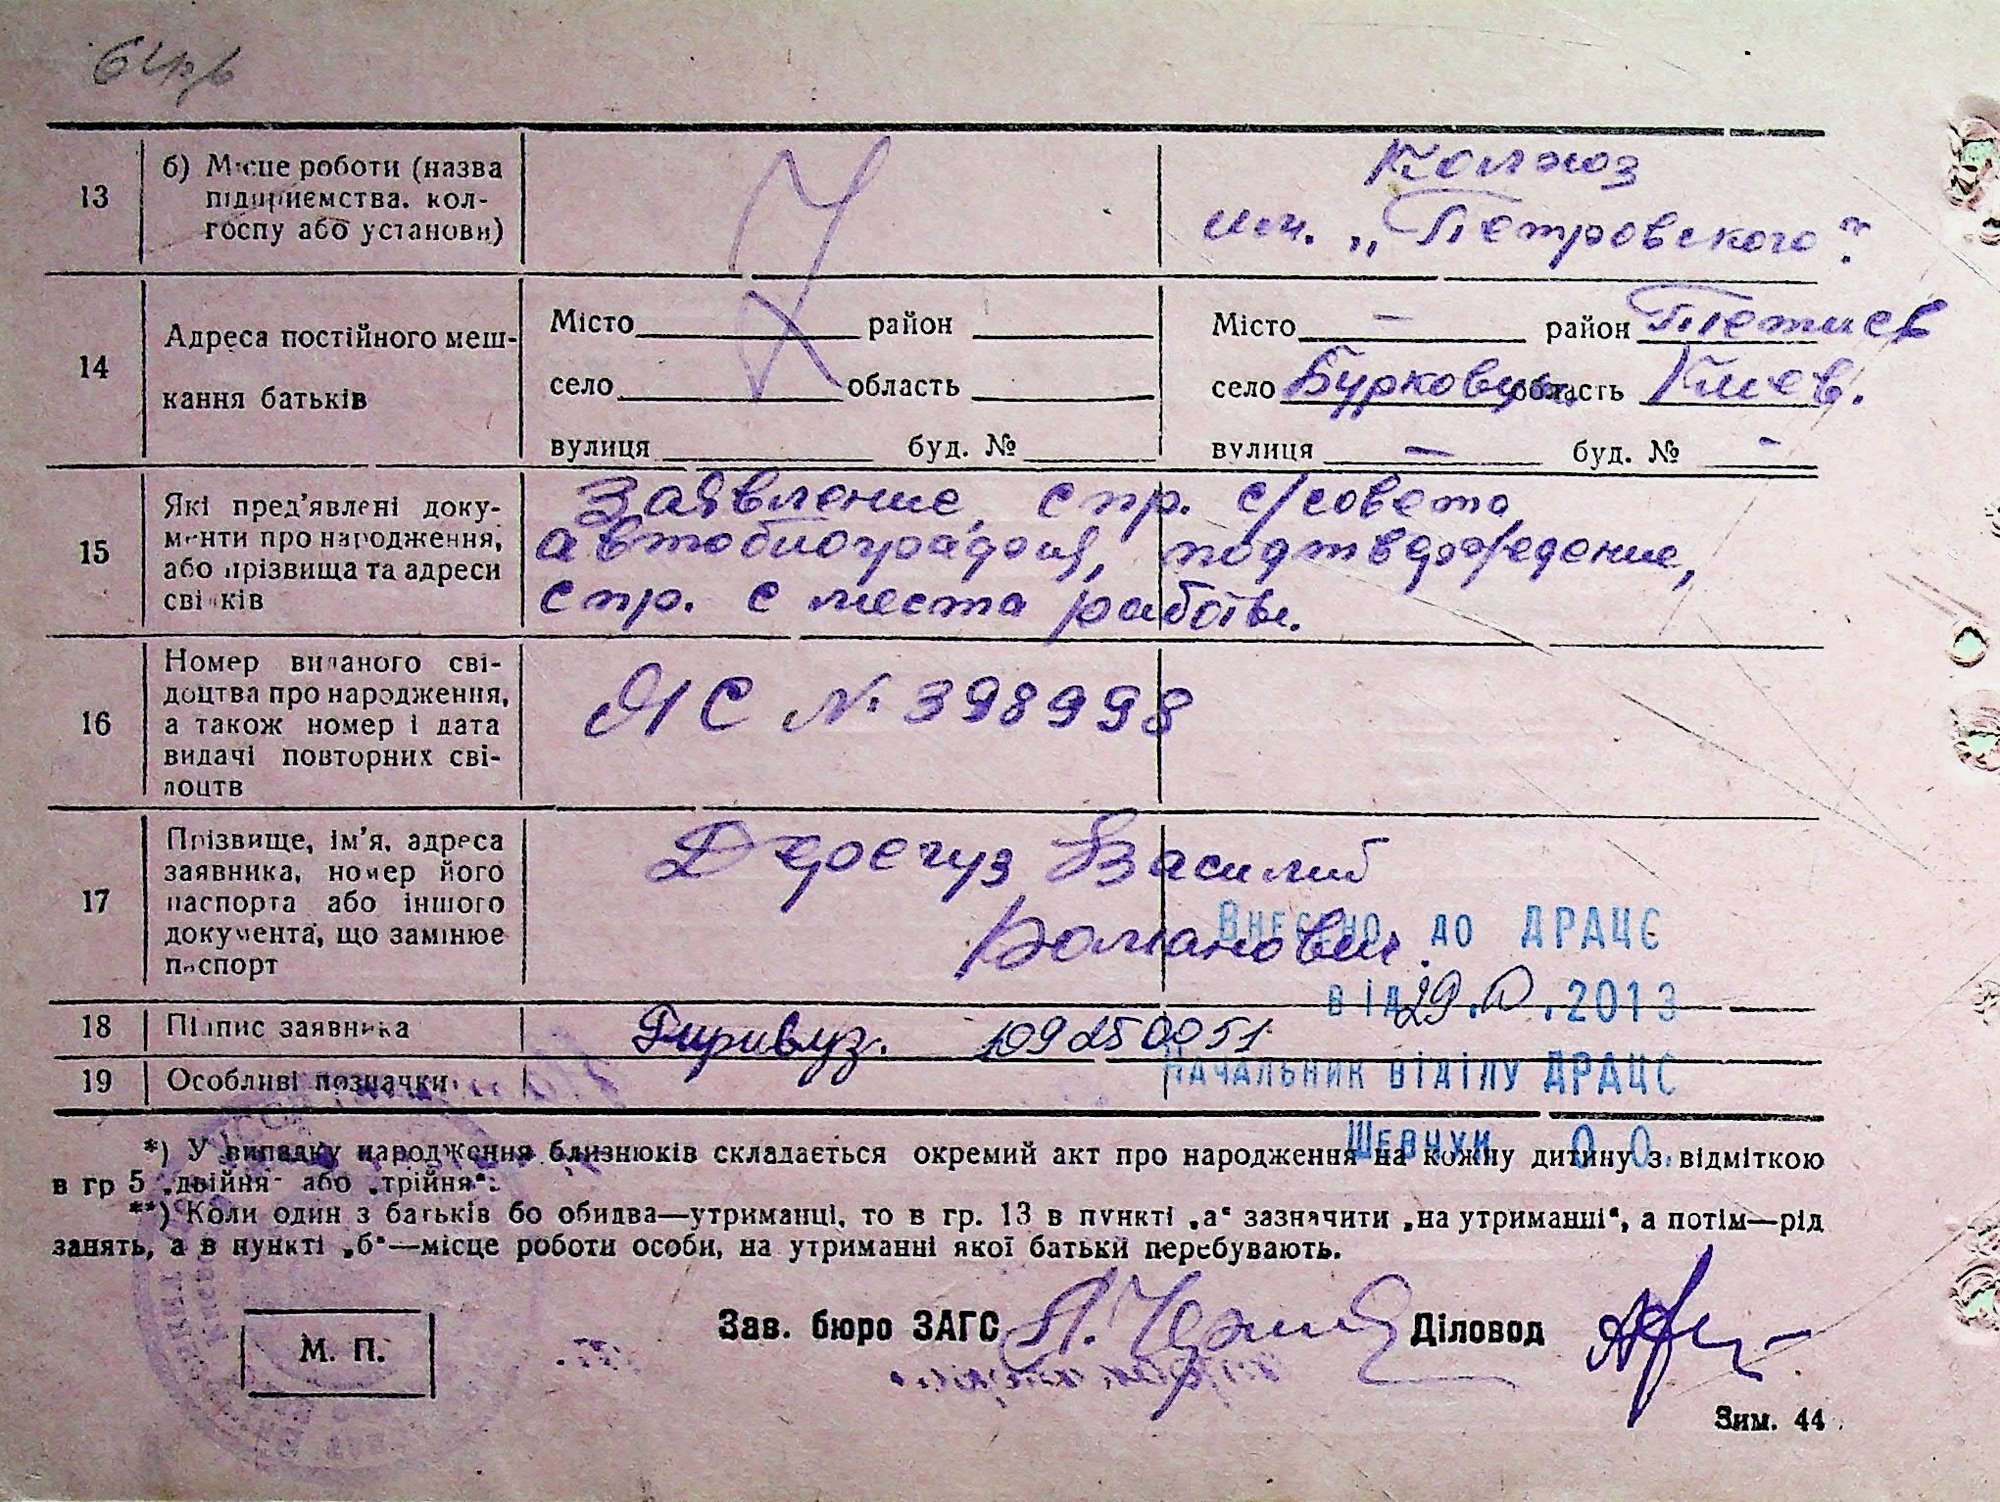 13
б) Місце роботи (назва
підприємства, кол-
госпу або установи)
Колхоз
им. „Петровского“
14
Адреса постійного меш-
кання батьків
Місто район
село область
вулиця буд. №
Місто — район Тетиев
село Бурковцы область Киев.
вулиця — буд. № -
15
Які пред'явлені доку-
менти про народження,
або прізвища та адреси
свідків
Заявление, спр. с/совета,
автобиография, подтверждение,
спр. с места работы.
16
Номер виданого сві-
доцтва про народження,
а також номер і дата
видачі повторних сві-
доцтв
ЯС № 398998
17
Прізвище, ім'я, адреса
заявника, номер його
паспорта або іншого
документа, що замінює
паспорт
Василий
Романович.
Внесено до ДРАЦС
від 29. .2013
18
Підпис заявника
109250051
Начальник відділу ДРАЦС
19
Особливі позначки
Шевчук О.О.
*) У випадку народження близнюків складається окремий акт про народження на кожну дитину з відміткою
в гр 5 „двійня“ або „трійня“.
**) Коли один з батьків бо обидва—утриманці, то в гр. 13 в пункті „а“ зазначити „на утриманні“, а потім—рід
занять, а в пункті „б“—місце роботи особи, на утриманні якої батьки перебувають.
М. П.
Зав. бюро ЗАГС
Діловод
Зим. 44